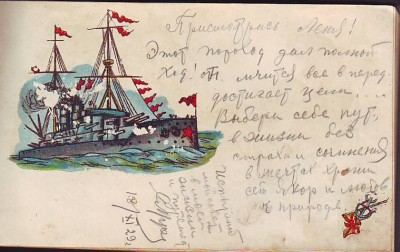 Присмотрись Леня!
Этот пороход дал полной
ход! он мчится все в перед
достигает цели....
Выбери себе путь
в жизни без
страха и сомнения
в мечтах храни
якор и любовь
к природе.
18/XI 29г.